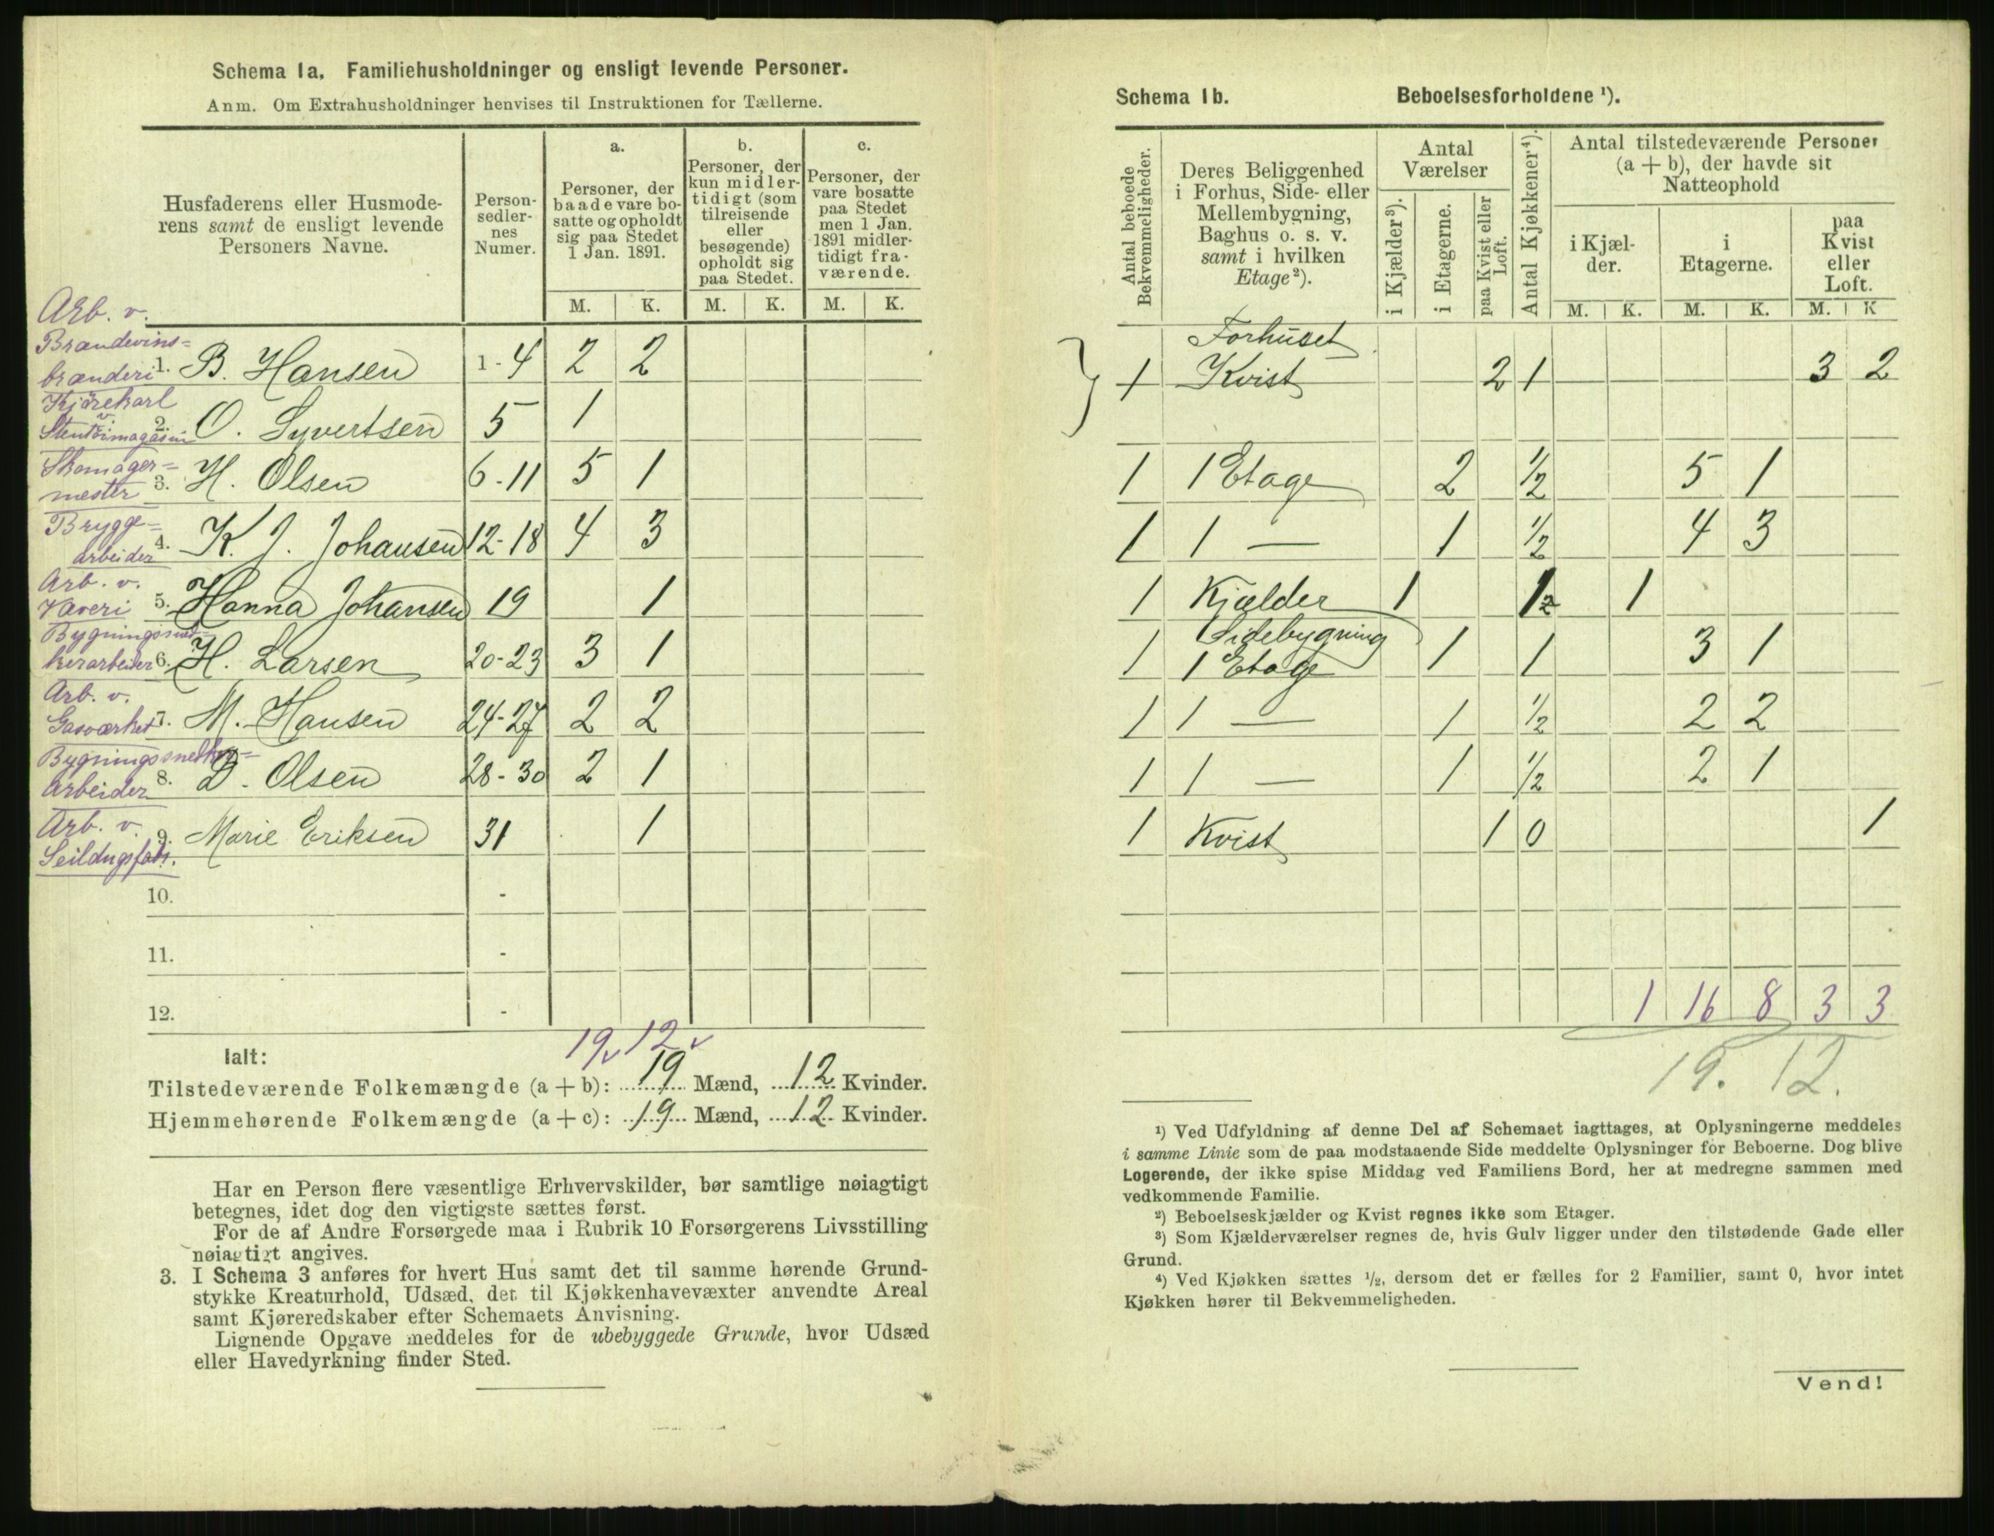 Schema 1a. Familiehusholdninger og ensligt levende Personer.
Anm. Om Extrahusholdninger henvises til Instruktionen for Tællerne.
Husfaderens eller Husmode-
rens samt de ensligt levende
Personers Navne.
Person-
sedler-
nes
Numer.
a.
Personer, der
baade vare bo-
satte og opholdt
sig paa Stedet
1 Jan. 1891.
b.
Personer, der
kun midler-
tidigt (som
tilreisende
eller
besøgende)
opholdt sig
paa Stedet.
c.
Personer, der
vare bosatte
paa Stedet
men 1 Jan.
1891 midler-
tidigt fra-
værende.
M. K. M. K. M. K.
Arb. v.
Brændevins=
brænderi 1. B. Hansen 1-4 2 2
Kjørekarl
v
Stentøimagasin 2. O. Syvertsen 5 1
Skomager=
mester 3. H. Olsen 6-11 5 1
Brygge=
arbeider 4. K. J. Johansen 12-18 4 3
Arb. v.
Væveri 5. Hanna Johansen 19 1
Bygningssned=
kerarbeider 6. H. Larsen 20-23 3 1
Arb. v.
Gasværket 7. M. Hansen 24-27 2 2
Bygningssnedker=
arbeider 8. D. Olsen 28-30 2 1
Arb. v.
Seildugsfab. 9. Marie Eriksen 31 1
10. -
11. -
12. -
19 v 12 v
Ialt:
Tilstedeværende Folkemængde (a + b): 19 Mænd, 12 Kvinder.
Hjemmehørende Folkemængde (a + c): 19 Mænd, 12 Kvinder.
Har en Person flere væsentlige Erhvervskilder, bør samtlige nøiagtigt
betegnes, idet dog den vigtigste sættes først.
For de af Andre Forsørgede maa i Rubrik 10 Forsørgerens Livsstilling
nøiagtigt angives.
3. I Schema 3 anføres for hvert Hus samt det til samme hørende Grund-
stykke Kreaturhold, Udsæd, det til Kjøkkenhavevæxter anvendte Areal
samt Kjøreredskaber efter Schemaets Anvisning.
Lignende Opgave meddeles for de ubebyggede Grunde, hvor Udsæd
eller Havedyrkning finder Sted.
Schema 1b. Beboelsesforholdene ¹).
Antal beboede
Bekvemmeligheder.
Deres Beliggenhed
i Forhus, Side- eller
Mellembygning,
Baghus o. s. v.
samt i hvilken
Etage ²).
Antal
Værelser
i Kjælder ³).
i Etagerne.
paa Kvist eller
Loft.
Antal Kjøkkener ⁴).
Antal tilstedeværende Personer
(a + b), der havde sit
Natteophold
i Kjæl-
der.
i
Etagerne.
paa
Kvist
eller
Loft.
M. K. M. K. M. K
Forhuset
1 Kvist 2 1 3 2
1 1 Etage 2 1/2 5 1
1 1 — 1 1/2 4 3
1 Kjælder 1 1/2 1
Sidebygning
1 1 Etage 1 1 3 1
1 1 — 1 1/2 2 2
1 1 — 1 1/2 2 1
1 Kvist 1 0 1
1 16 8 3 3
19. 12.
¹) Ved Udfyldning af denne Del af Schemaet iagttages, at Oplysningerne meddeles
i samme Linie som de paa modstaaende Side meddelte Oplysninger for Beboerne. Dog blive
Logerende, der ikke spise Middag ved Familiens Bord, her at medregne sammen med
vedkommende Familie.
²) Beboelseskjælder og Kvist regnes ikke som Etager.
³) Som Kjælderværelser regnes de, hvis Gulv ligger under den tilstødende Gade eller
Grund.
⁴) Ved Kjøkken sættes ¹/₂, dersom det er fælles for 2 Familier, samt 0, hvor intet
Kjøkken hører til Bekvemmeligheden.
Vend!